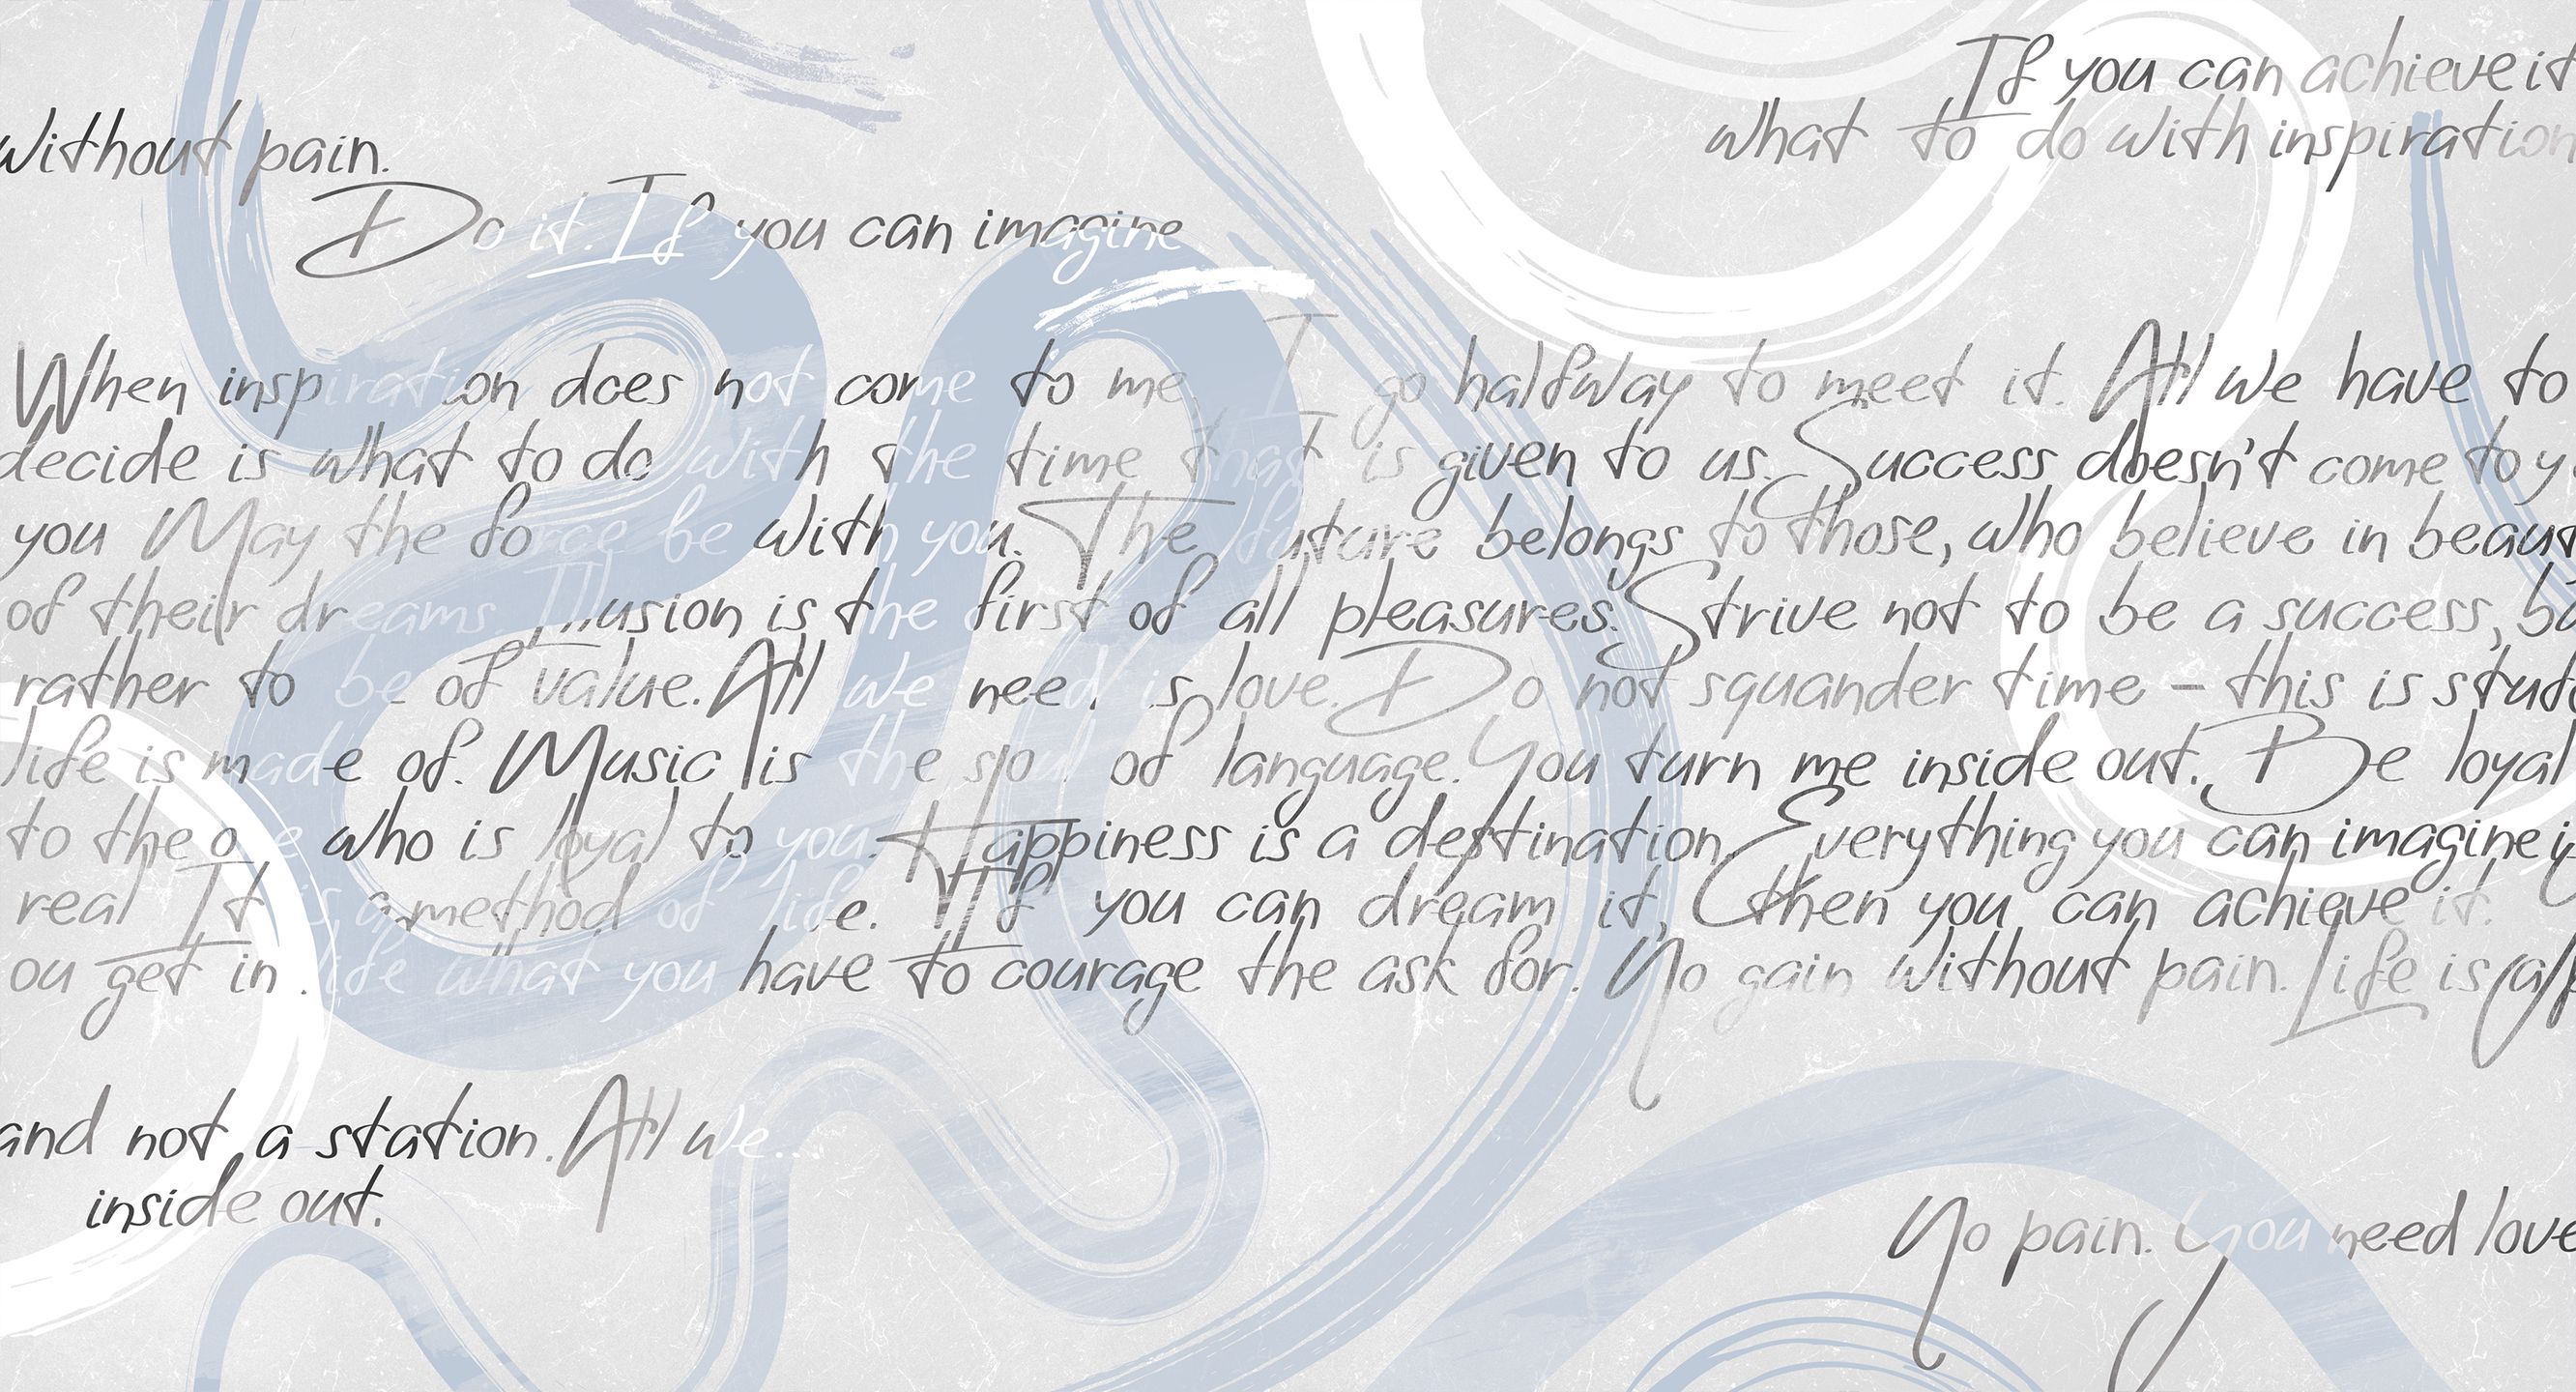 If you can achieve it
what to do with inspiration
without pain.
Do it. If you can imagine
When inspiration does not come to me, I go halfway to meet it. All we have to
decide is what to do with the time that is given to us. Success doesn't come to y
you May the force be with you. The future belongs to those, who believe in beaut
of their dreams. Illusion is the first of all pleasures. Strive not to be a success, bu
rather to be of value. All we need is love. Do not squander time – this is stuf
life is made of. Music is the soul of language. You turn me inside out. Be loyal
to the one who is loyal to you. Happiness is a destination. Everything you can imagine i
real It is a method of life. If you can dream it, then you can achieve it.
ou get in life what you have to courage the ask for. No gain without pain. Life is a
and not a station. All we...
inside out.
No pain. You need love